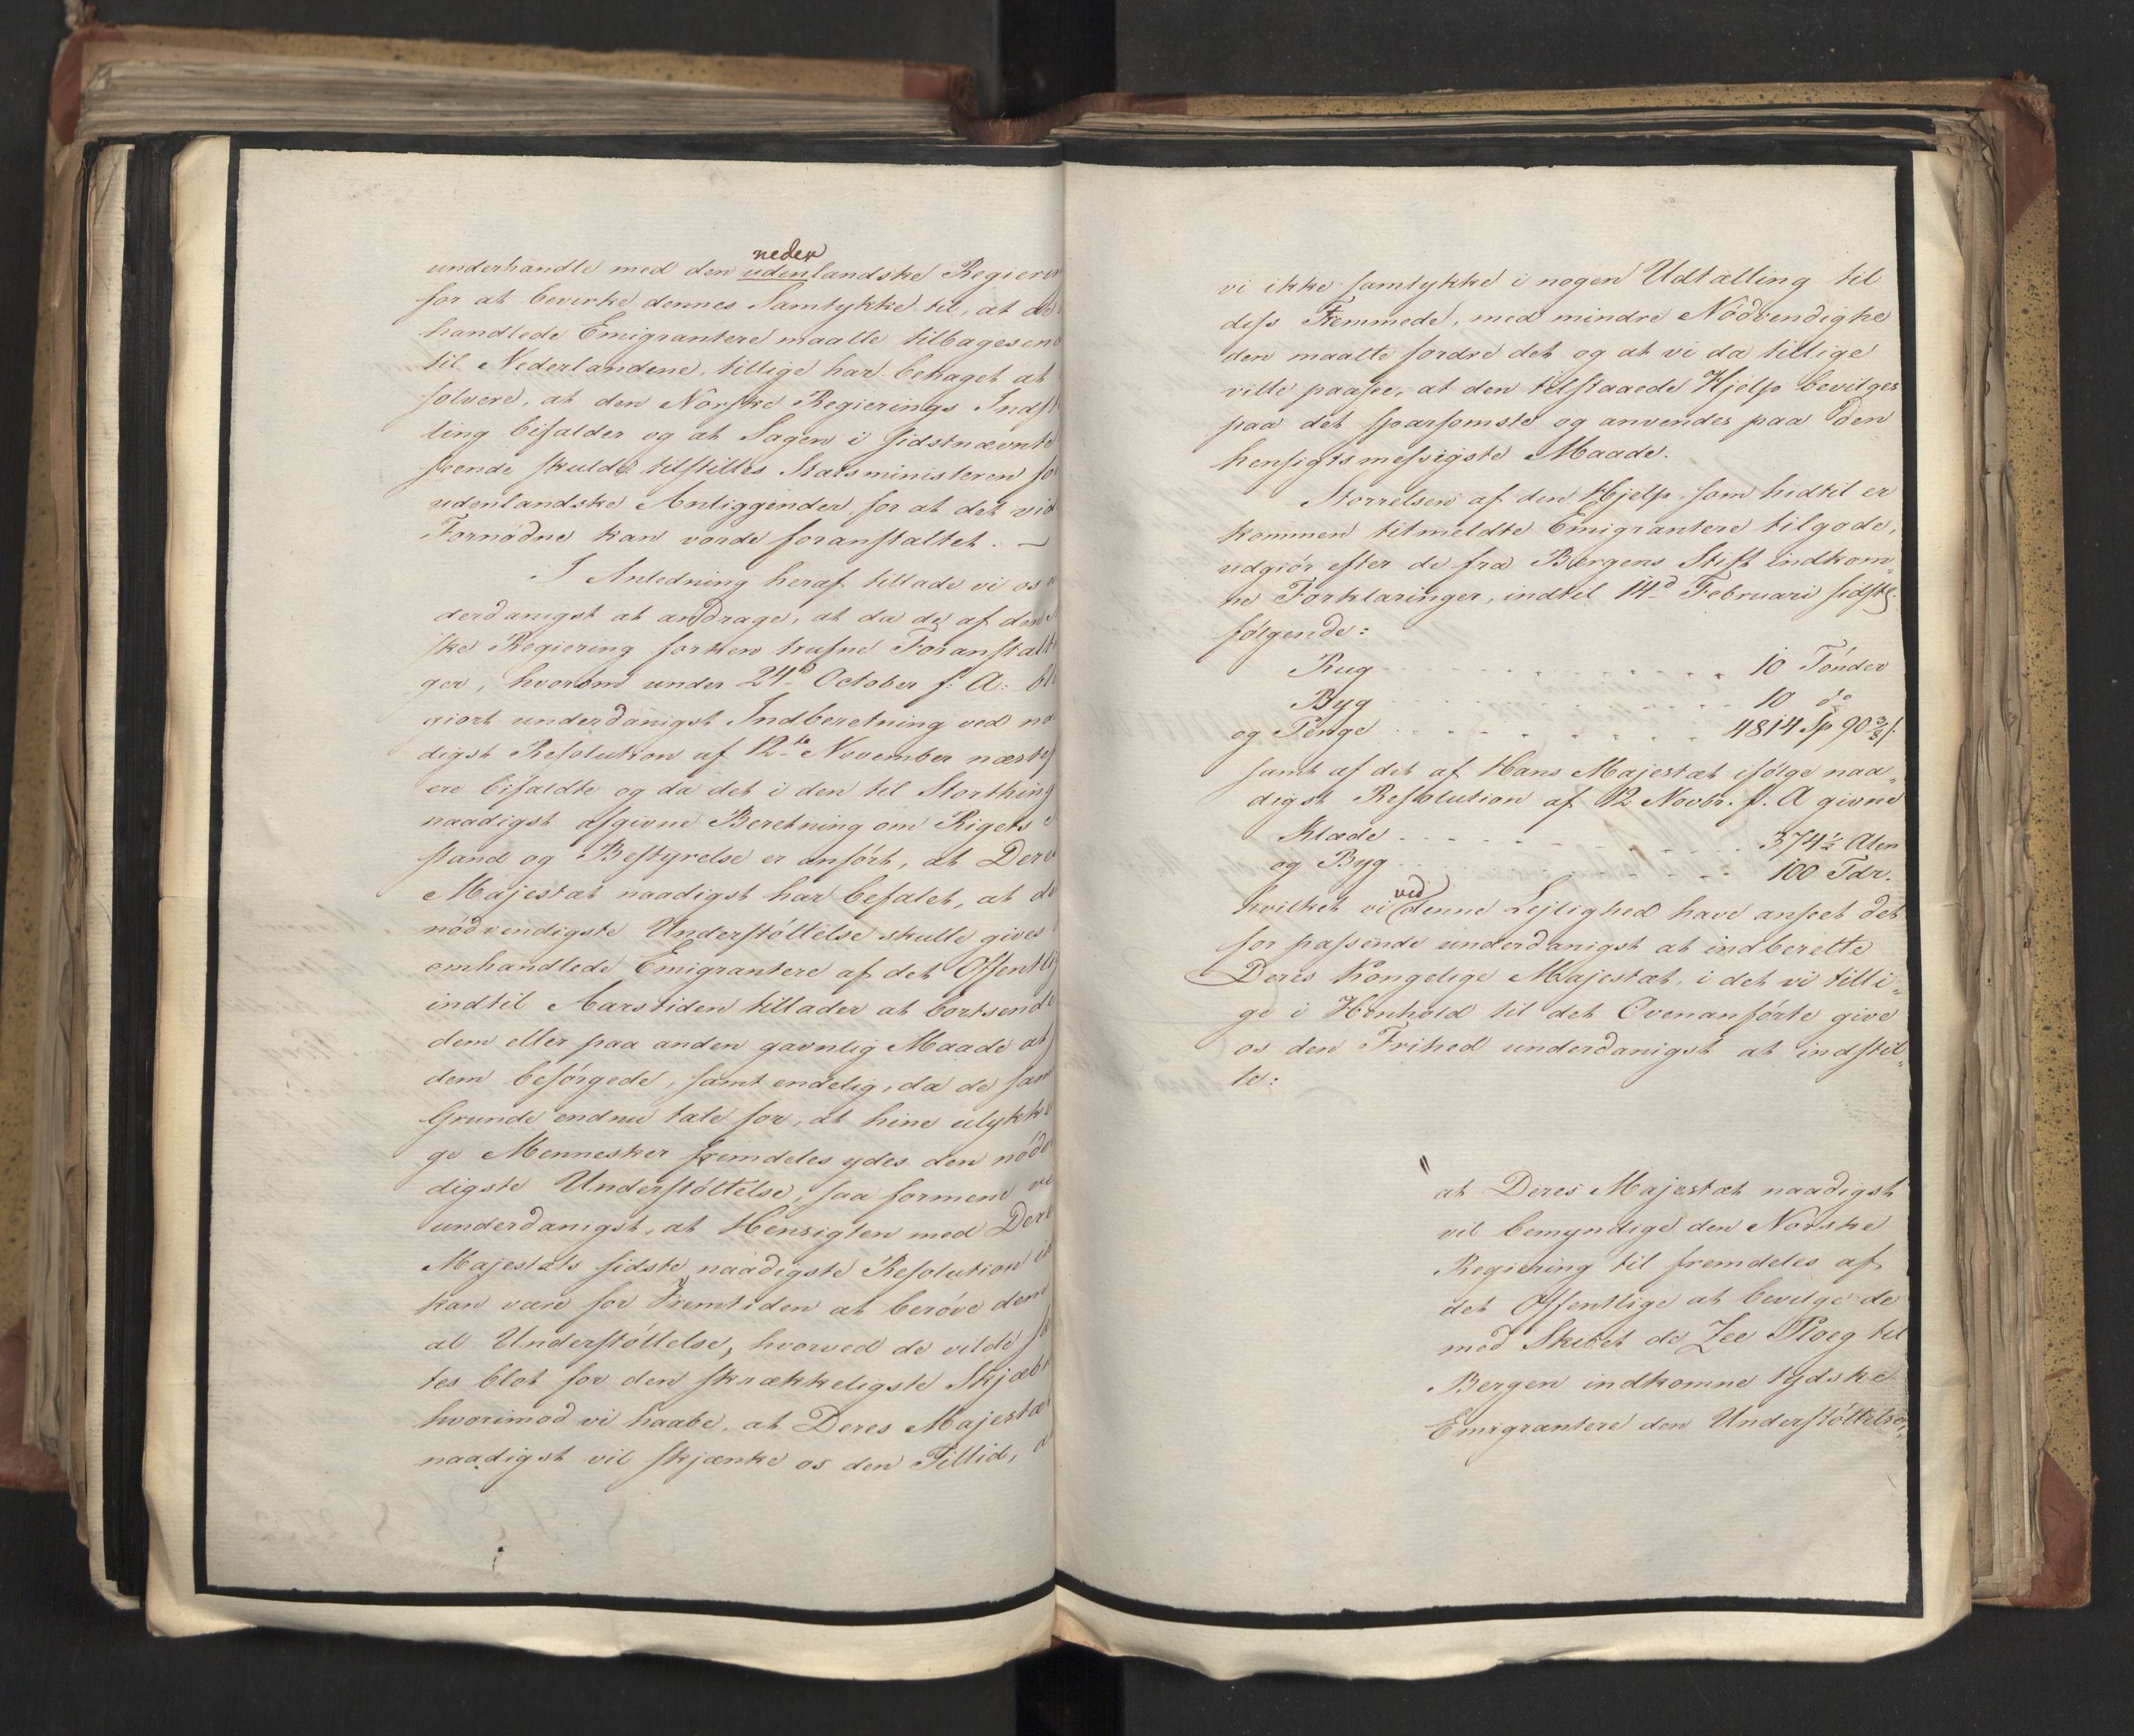 neder
underhandle med den udenlandske Regierin
for at bevirke dennes Samtykke til, at de
handlede Emigrantere maatte tilbagesen
til Nederlandene, tillige har behaget at
solvere, at den Norske Regierings Indst
ling bifaldes og at Sagen i sidstnævnte
seende skulde tilstilles Statsministeren for
udenlandske Anligginder for at det vid
Fornødne kan vorde foranstaltet. —
I Anledning heraf tillade vi os
derdanigst at andrage, at da de af den
ske Regiering forhen trufne Foranstalt
ger, hvorom under 24d October f: A: bl
giort underdanigst Indberetning ved na
digst Resolution af 12te November næstef
ere bifaldte og da det i den til Storthing
naadigst afgivne Beretning om Rigets
stand og Bestyrelse er anført, at Dere
Majestæt naadigst har befalet, at de
nødvendigste Understøttelse skulle gives
omhandlede Emigrantere af det Offentli
indtil Aarstiden tillader at bortsende
dem eller paa anden gavnlig Maade at
dem besørgede, samt endelig, da de sam
Grunde endnu tale for, at hine ulykke
ge Mennesker fremdeles ydes den nødv
digste Understøttelse, saa formene vi
underdanigst, at Hensigten med Dere
Majestæts sidste naadigste Resolution ik
kan være for Fremtiden at berøve dem
al Understøttelse, hvorved de vilde
tes blot for den skrækkeligste Skjæb
hvorimod vi haabe, at Deres Majestæt
naadigst vil skjænke os den Tillid, a
vi ikke samtykke i nogen Udtælling til
disse Fremmede, med mindre Nødvendighe
den maatte fordre det og at vi da tillige
ville paasee, at den tilstaaede Hjelp bevilges
paa det sparsomste og anvendes paa den
hensigtsmessigste Maade.
Størrelsen af den Hjelp, som hidtil er
kommen titmeldte Emigrantere tilgode,
udgiør efter de fra Bergens Stift indkom„
ne Forklaringer, indtil 14d Februari sidstl.
følgende:
Rug . . . . . . . . 10 Tønder
Byg . . . . . . . . 10 do
og Penge . . . . . . . 4814 Sp 90 3/8 s.
samt af det af Hans Majestæt ifølge naa„
digst Resolution af 12 Novbr. f. A givne
Klæde . . . . . . . . 374½ Alen
og Byg . . . . . . . . 100 Tdr.
hvilket vi ved denne Lejlighed have anseet det
for passende underdanigst at indberette
Deres Kongelige Majestæt, i det vi tilli„
ge i Henhold til det Ovenanførte give
os den Frihed underdanigst at indstil„
le:
at Deres Majestæt naadigst
vil bemyndige den Norske
Regiering til fremdeles af
det Offentlige at bevilge de
med Skibet de Zee Ploeg til
Bergen indkomne tydske
Emigrantere den Understøttelse,